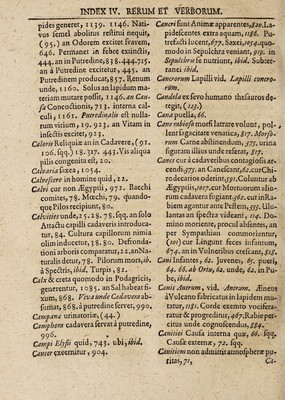 INDEX IV. RERUM ET VERBORUM.
pides generet, 1139. 1146. Nati-
vus semel abolitus restitui nequit,
(95.) an Odorem excitet svavem,
646. Permanet in febre extinctis,
444. an in Putredine, 838. 444. 715.
an à Putredine excitetur, 445. an
Putredinem producat, 857. Renum
unde, 1160. Solus an lapidum ma-
teriam mutare possit, 1146. an Cau-
sa Concoctionis, 713. interna cal-
culi, 1161. Putredinalis est nulla-
rum virium, 19. 923. an Vitam in
insectis excitet, 923.
Caloris Reliquiæ an in Cadavere, (91.
106. sqq.) 18. 327. 443. Vis aliqua
pilis congenita est, 20.
Calvaria saxea, 1054.
Calvescere in homine quid, 22.
Calvi cur non Ægyptii, 972. Bacchi
comites, 78. Mœchi, 79. quando-
que Pilos recipiunt, 80.
Calvities unde, 25. 28. 78. sqq. an solo
Attactu capilli cadaveris introduca-
tur, 84. Cultura capillorum nimia
olim inducetur, 38. 80. Defronda-
tioni arboris comparatur, 22. an Na-
turalis detur, 78. Pilorum mors, ib.
à Spectris, ibid. Turpis, 82.
Calx & creta quomodo in Podagricis,
generentur, 1085. an Sal habeat fi-
xum, 868. Viva unde Cadavera ab-
sumat, 868. à putredine servet, 990.
Campana urinatoriæ, (44.)
Camphora cadavera servat à putredine,
996.
Campi Elysii quid, 743. ubi, ibid.
Cancer exeemitur, 904.
Cancri sunt Animæ apparentes, 820. La-
pidescentes extra aquam, 1186. Pu-
trefacti lucent, 677. Saxei, 1054. quo-
modo in Sepulchra veniant, 919. in
Sepulchris se nutriunt, ibid. Subter-
ranei ibid.
Cancrorum Lapilli vid. Lapilli cancro-
rum.
Candela ex sevo humano thesauros de-
tegit, (123.)
Cana puella, 66.
Canes rabidi morsi lattare volunt, pol-
lent sagacitate venatica, 817. Morso-
rum Carne abstinendum, 375. urina
figuram illius unde referat, 817.
Canes cur à cadaveribus contagiosis ab-
scendi, 375. an Canescant, 62. cur Chi-
rodecarios oderint, 591. Coluntur ab
Ægyptiis, 1017. cur Mortuorum alio-
rum cadavera fugiant, 663. cur in Ra-
biem agantur ante Pestem, 935. Ulu-
lantas an spectra videant, 114. Do-
mino moriente, procul absentes, an
per Sympathiam commoriuntur,
(101) cur Lingunt feces infantum,
674. an in Vulneribus crescant, 815.
Cani infantes, 62. Juvenes, 65. puella
64. 66. ab Ortu, 62. unde, 62. in Pu-
be, ibid.
Canis Antrum, vid. Antrum. Æneus
à Vulcano fabricatus in lapidem mu-
tatur, 1151. Corde exemto vocifera-
tur & progreditur, 467. Rabie per-
citus unde cognoscendus, 554.
Canitiei Causa interna quæ, 66. sqq.
Causæ externæ quæ, 72. sqq.
Canitiem non admittit anmospheræ pu-
titas, 71,
Ca-